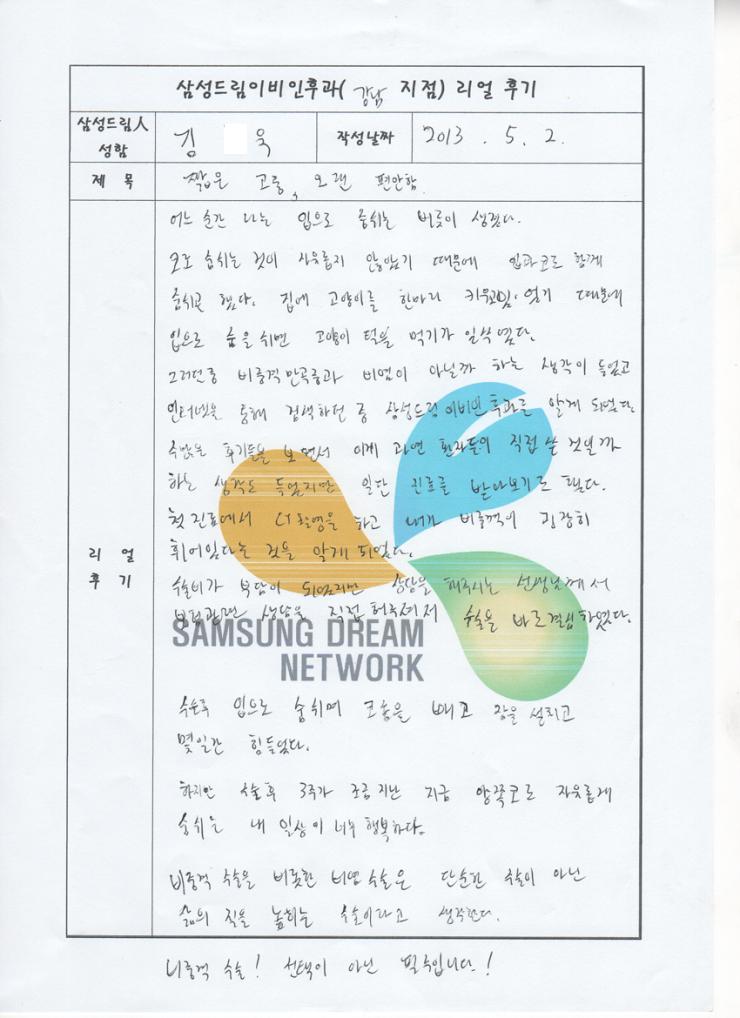 삼성드림이비인후과( 강남 지점) 리얼 후기
삼성드림人 성함
김 욱
작성날짜
2013. 5. 2.
제 목
짧은 고통, 오랜 편안함.
리 얼 후 기
어느 순간 나는 입으로 숨쉬는 버릇이 생겼다.
코로 숨쉬는 것이 자유롭지 않았기 때문에 입과코로 함께
숨쉬곤 했다. 집에 고양이를 한마리 있기 때문에
입으로 숨을 쉬면 고양이 털을 먹기가 일쑤였다.
그러던중 비중격만곡증과 비염이 아닐까 하는 생각이 들었고
인터넷을 통해 검색하던 중 삼성드림이비인후과를 알게 되었다.
수많은 후기들을 보면서 이게 과연 환자들이 직접 쓴 것일까
하는 생각도 들었지만 일단 진료를 받아보기로 했다.
첫 진료에서 CT촬영을 하고 내가 비중격이 굉장히
휘어있다는 것을 알게 되었다.
수술비가 부담이 되었지만 상담을 해주시는 선생님께서
보험관련 상담을 직접 해주셔서 수술을 바로결심하였다.
SAMSUNG DREAM
NETWORK
수술후 입으로 숨쉬며 코솜을 빼고 잠을 설치고
몇일간 힘들었다.
하지만 수술후 3주가 조금지난 지금 양쪽코로 자유롭게
숨쉬는 내 일상이 너무 행복하다.
비중격 수술을 비롯한 비염 수술은 단순한 수술이 아닌
삶의 질을 높히는 수술이라고 생각한다.
비중격 수술! 선택이 아닌 필수입니다.!